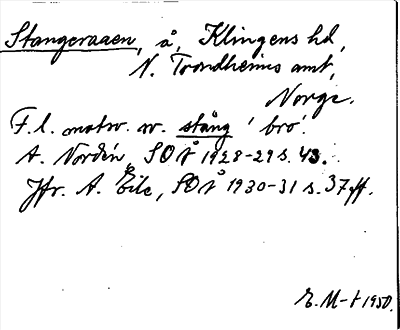 Stangeraaen, å, Klingens hd,
N. Trondheims amt,
Norge.
F.l. motsv. sv. stång 'bro'.
A. Nordén, SOÅ 1928-29 s. 43.
Jfr. A. Eile, SOÅ 1930-31 s. 37 ff.
E. M-t 1950.